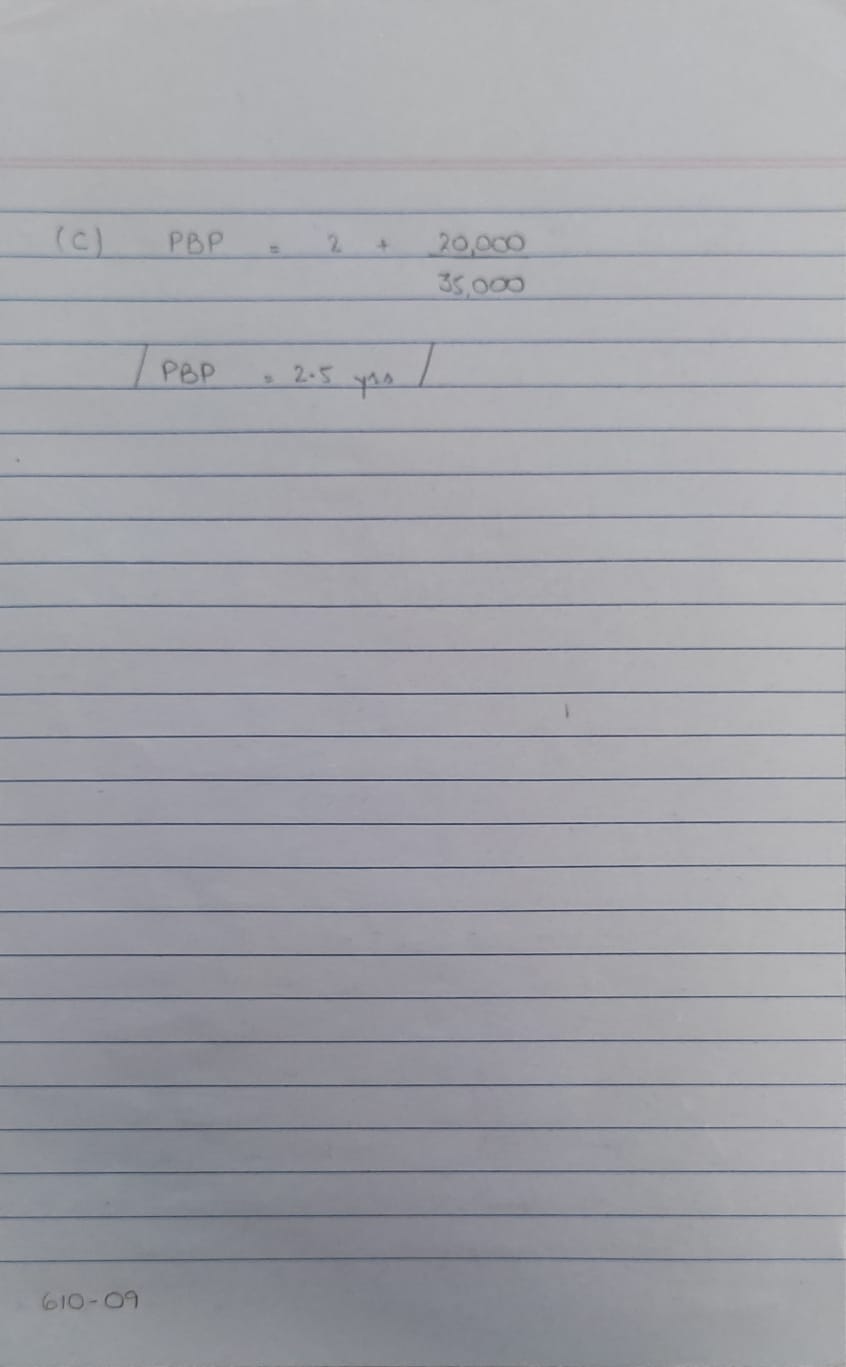 (C) PBP = 2 + 20,000
35,000
PBP = 2.5 yrs
610-09